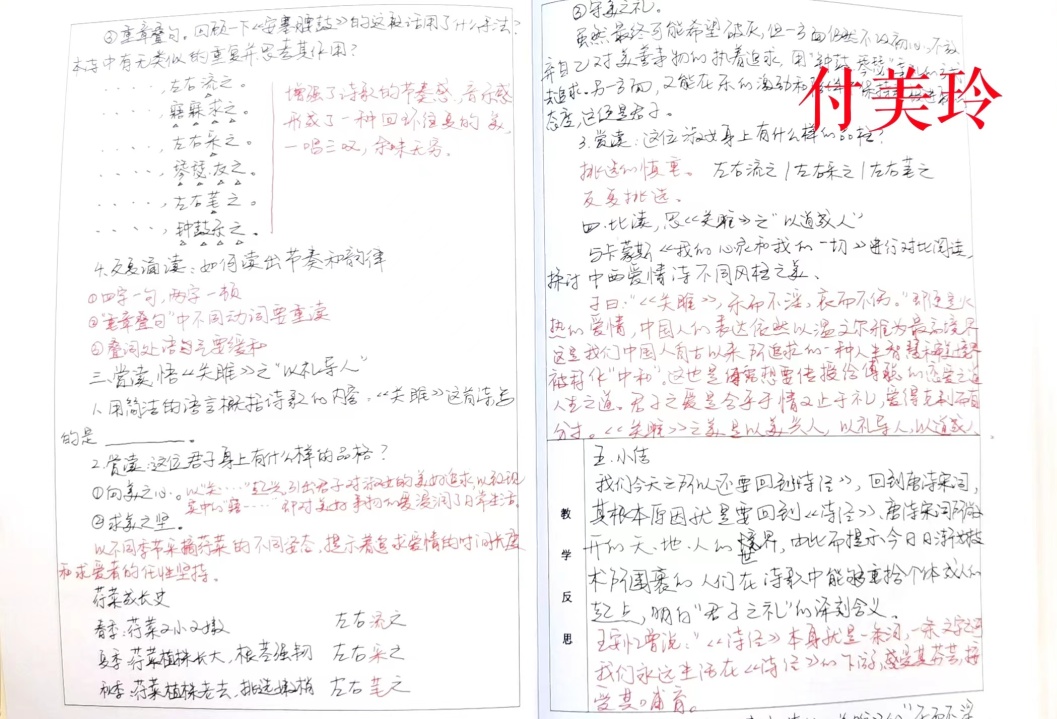 ③重章叠句。回顾一下《安塞腰鼓》的这段话用了什么手法?
本诗中有无类似的重复并思考其作用?
左右流之。
····,寤寐求之。
····,左右采之。
····,琴瑟友之。
····,左右芼之。
····,钟鼓乐之。
增强了诗歌的节奏感,音乐感
形成了一种回环往复的美,
一唱三叹,余味无穷。
4.反复诵读:如何读出节奏和韵律
①四字一句,两字一顿
②"重章叠句"中不同动词要重读
③叠词处语气要缓和
三.赏读,悟《关雎》之"以礼导人"
1.用简洁的语言概括诗歌的内容:《关雎》这首诗写
的是 ________。
2.赏读:这位君子身上有什么样的品格?
①向美之心。以"关……"起兴,引出君子对淑女的美好追求,以和现
实中的 即对美好事物的 浸润了日常生活。
②求美之坚。
以不同季节采摘荇菜的不同姿态,提示着追求爱情的时间长度
和求爱者的任性坚持。
荇菜成长史
春季:荇菜又小又嫩 左右流之
夏季:荇菜植株长大,根茎强韧 左右采之
秋季:荇菜植株老去,挑选嫩梢 左右芼之
③守美之礼。
虽然最终可能希望破灭,但一方面仍然不改初心,不放
弃自己对美善事物的执着追求,用"钟鼓
去追求。另一方面,又能在乐的激动和
态度,这便是君子。
付美玲
3.赏读:这位淑女身上有什么样的品格?
挑选的慎重。 左右流之/左右采之/左右芼之
反复挑选。
四.比读,思《关雎》之"以道成人"
与卡蒙斯《我的心永和我的一切》进行对比阅读,
探讨中西爱情诗不同风格之美、
子曰:"《关雎》,乐而不淫,哀而不伤。"即便是火
热的爱情,中国人的表达依然以温文尔雅为最高境界
这是我们中国人自古以来所追求的一种人生智慧和
被称作"中和"。这也是 想要传授给 的恋爱之道
人生之道。君子之爱是合乎于情又止于礼,爱得克制而有
分寸。《关雎》之美是以美兴人,以礼导人,以道成人。
教学反思
五.小结
我们今天之所以还要回到《诗经》,回到唐诗宋词,
其根本原因就是要回到《诗经》、唐诗宋词所敞
开的天、地、人的世界,由此而提示今日日渐被技
术所围裹的人们在诗歌中能够重拾个体成人的
起点,明白"君子之礼"的深刻含义。
王安忆曾说:"《诗经》本身就是一条河,一条文字之河
我们永远生活在《诗经》的下游,感受其芬芳,接
受其哺育。